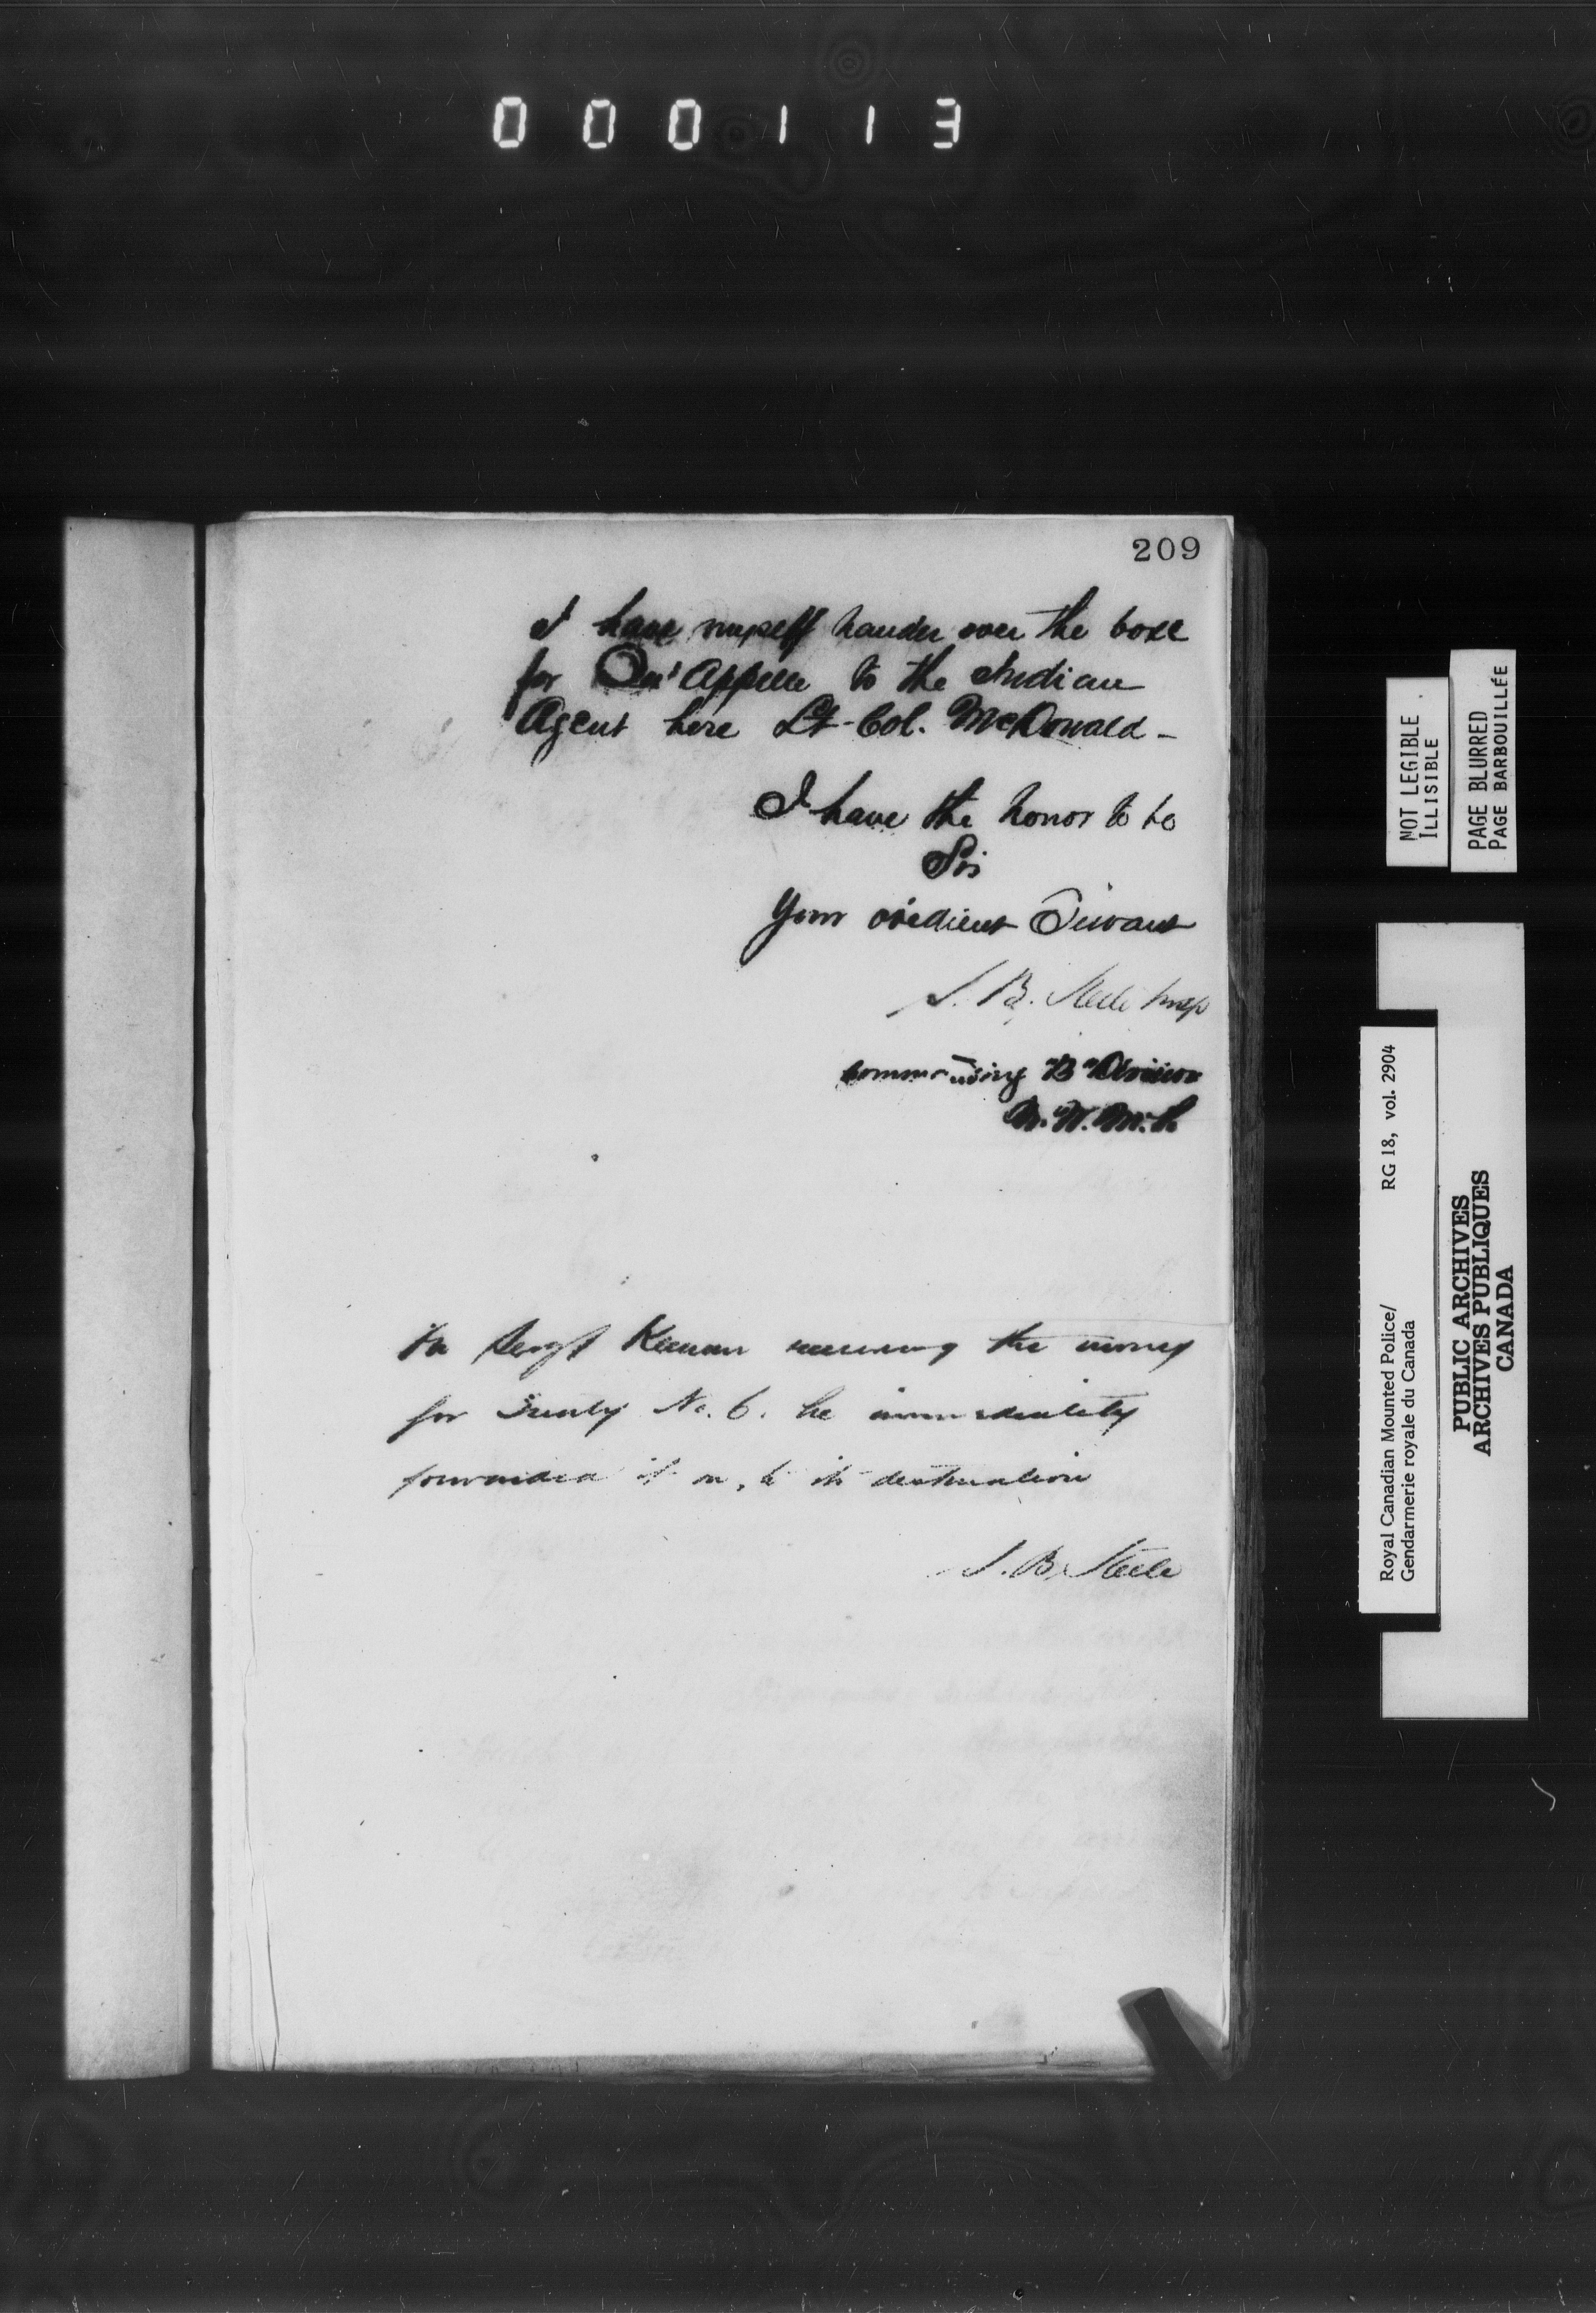 000113
209
I have myself handed over the boxe
for Qu'Appelle to the Indian
Agent here Lt-Col. McDonald-
I have the honor to be
Sir
Your obedient Servant
S. B. Steele Insp
Commanding "B" Division
N.W.M.P.
Sergt Keenan receiving the money
for Treaty No. 6. he immediately
forwarded it on, to its destination
S. B. Steele
NOT LEGIBLE
ILLISIBLE
PAGE BLURRED
PAGE BARBOUILLÉE
Royal Canadian Mounted Police/ RG 18, vol. 2904
Gendarmerie royale du Canada
PUBLIC ARCHIVES
ARCHIVES PUBLIQUES
CANADA